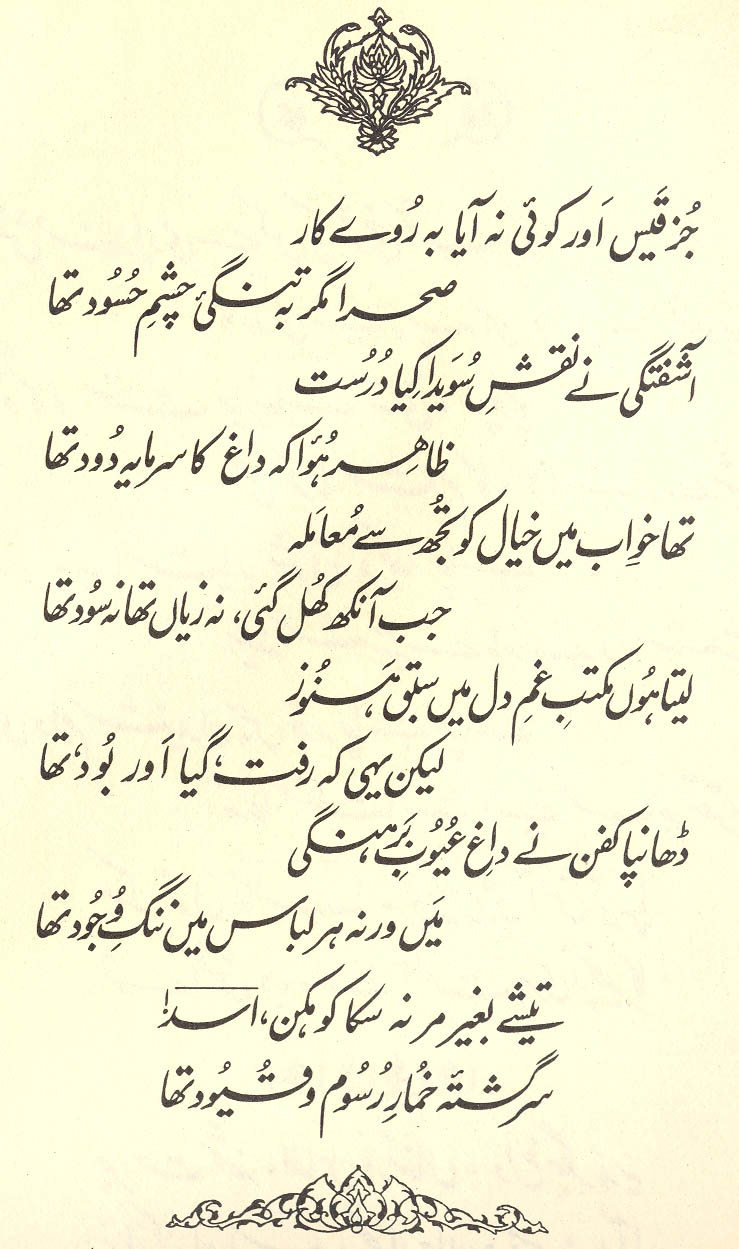 جُز قَیس اَور کوئی نہ آیا بہ رُوے کار
صحرا مگر بہ تنگیِٔ چشمِ حُسُود تھا
آشفتگی نے نقشِ سُوَیدا کِیا دُرُست
ظاہِر ہُوٴا کہ داغ کا سرمایہ دُود تھا
تھا خواب میں خیال کو تُجھ سے مُعاملہ
جب آنکھ کُھل گئی، نہ زیاں تھا نہ سُود تھا
لیتا ہُوں مکتبِ غمِ دل میں سبق ہَنُوز
لیکن یہی کہ رفت، گیا اَور بُود، تھا
ڈھانپا کفن نے داغِ عُیُوبِ بَرہنگی
مَیں ورنہ ہر لباس میں ننگِ وُجُود تھا
تیشے بغیر مر نہ سکا کوہکن، اسدؔ!
سرگشتۂ خُمارِ رُسُوم و قُیُود تھا